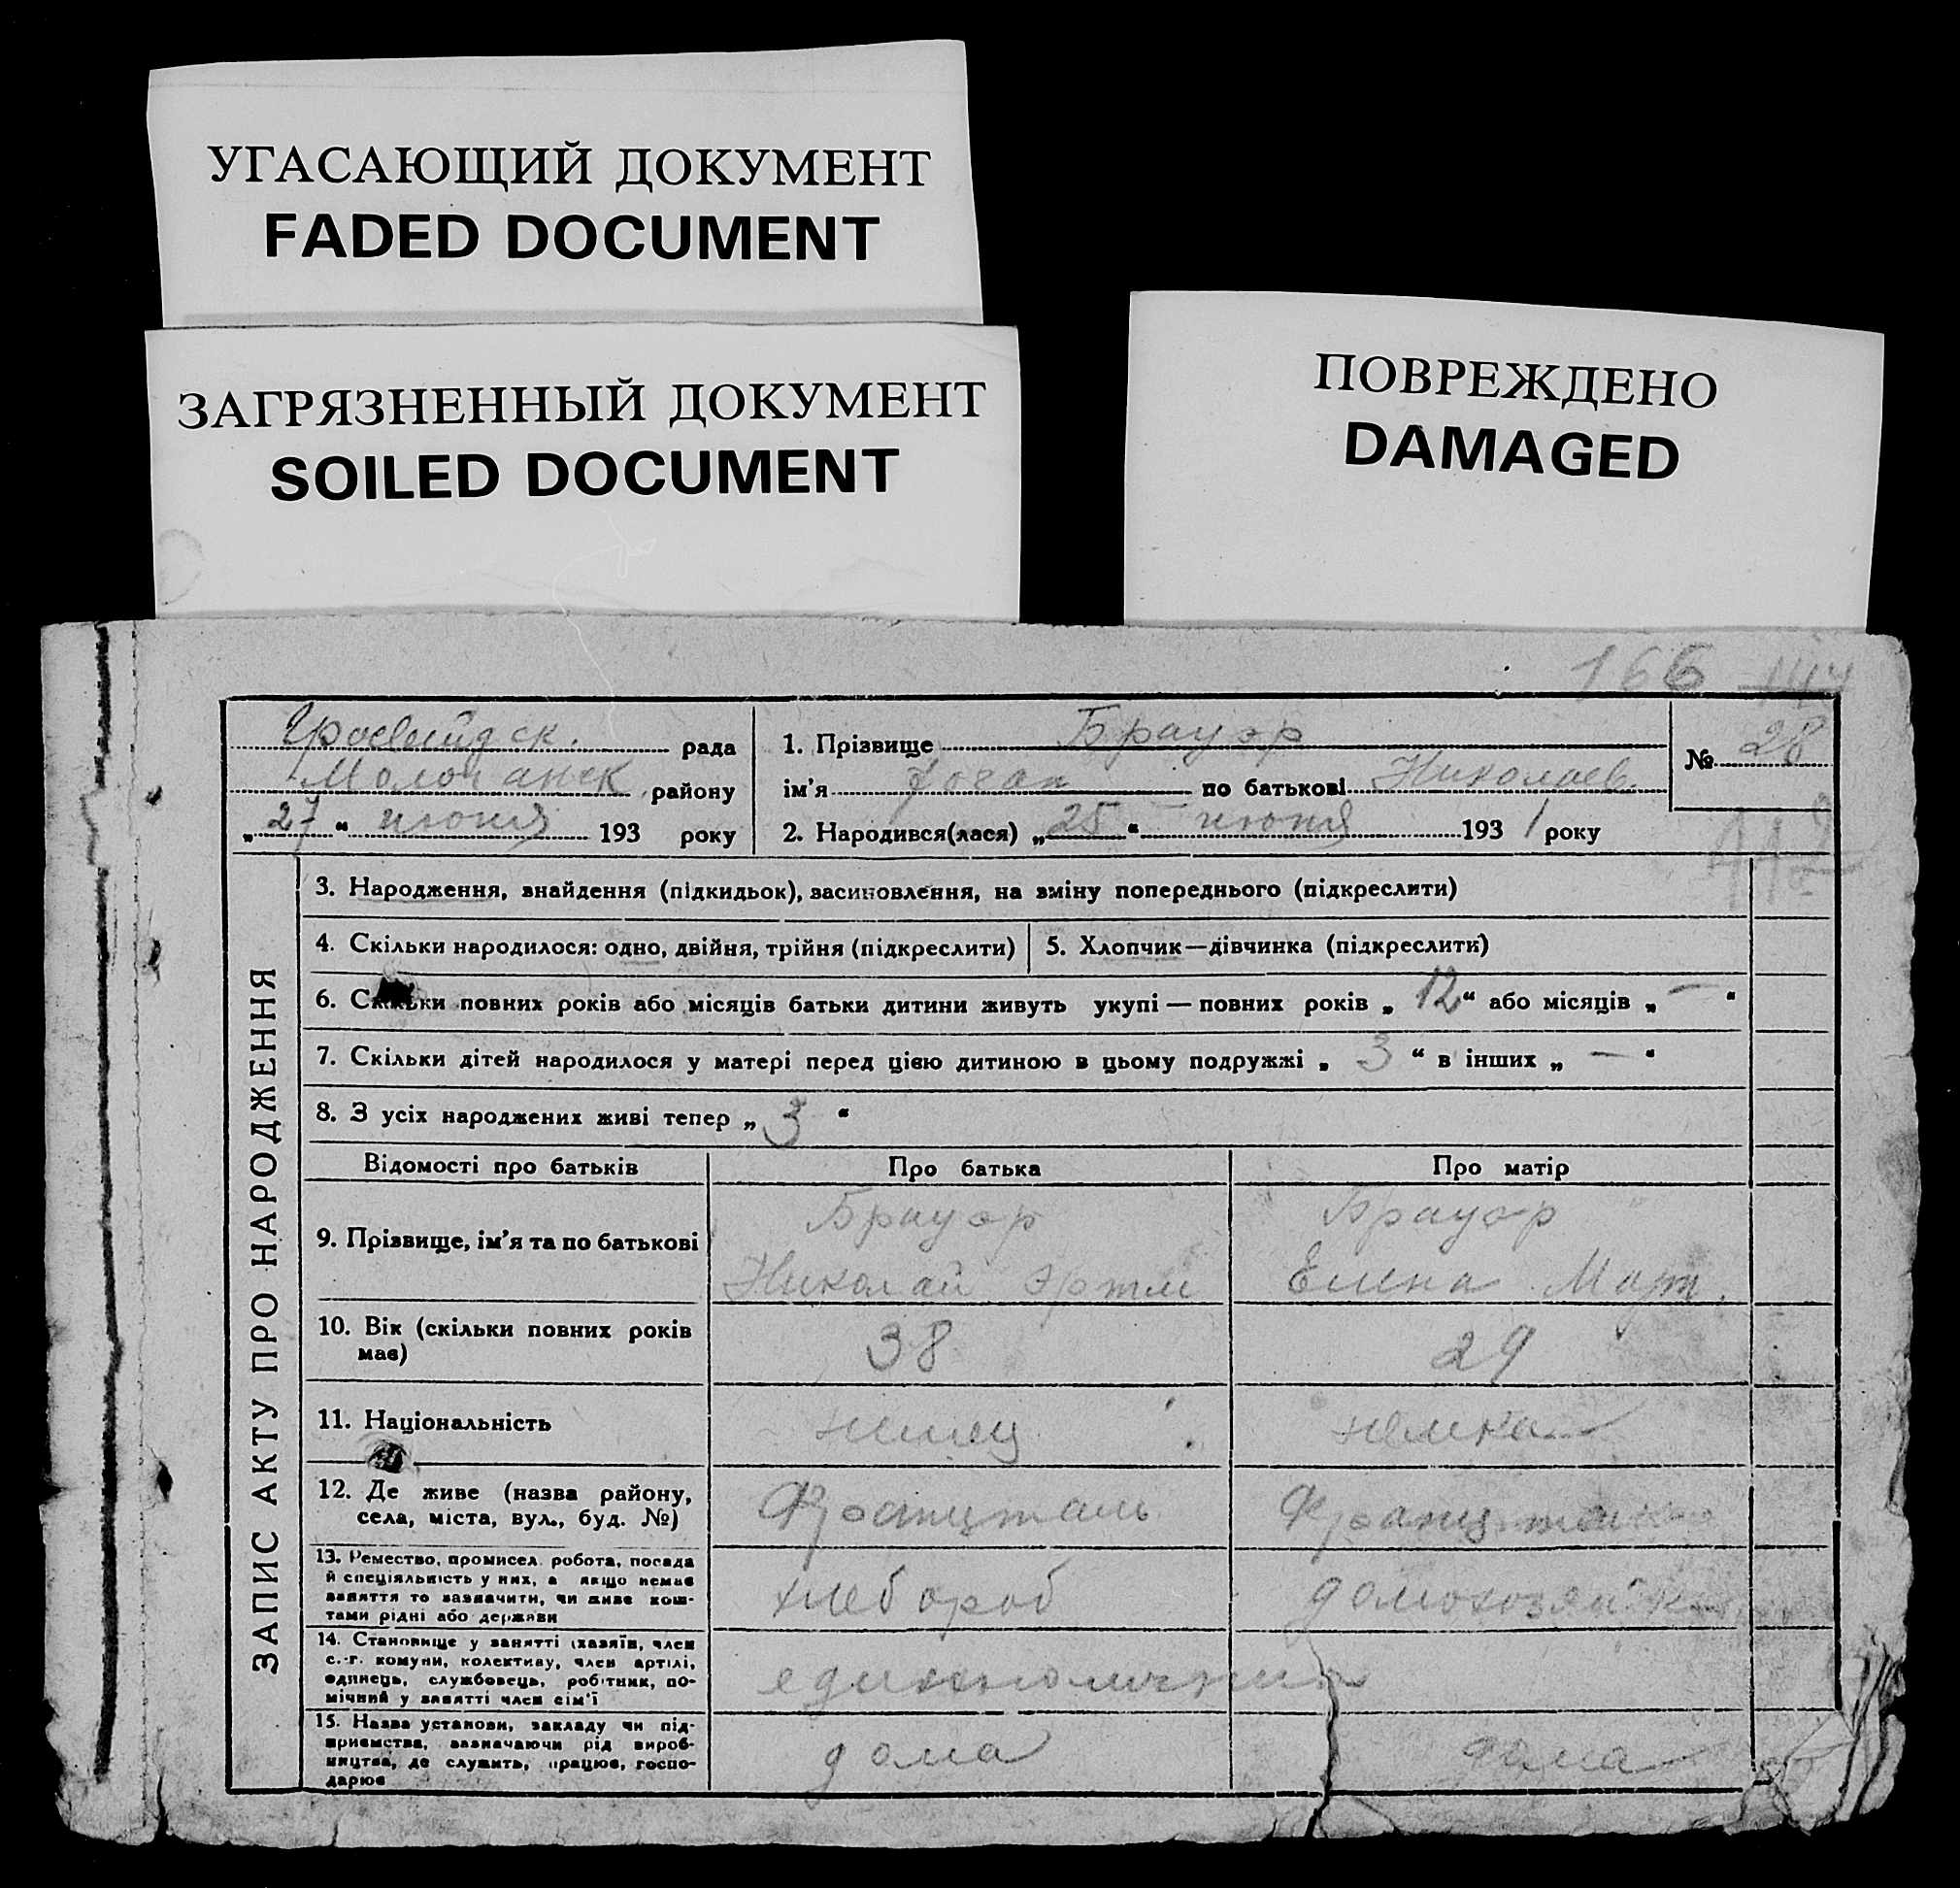 УГАСАЮЩИЙ ДОКУМЕНТ
FADED DOCUMENT
ЗАГРЯЗНЕННЫЙ ДОКУМЕНТ
SOILED DOCUMENT
ПОВРЕЖДЕНО
DAMAGED
166
рада
Молочанск району
„27“ июня 193 року
1. Прізвище Брауэр
ім'я Йоган по батькові Николаев.
2. Народився(лася) „25“ июня 1931 року
№ 28
ЗАПИС АКТУ ПРО НАРОДЖЕННЯ
3. Народження, знайдення (підкидьок), засиновлення, на зміну попереднього (підкреслити)
4. Скільки народилося: одно, двійня, трійня (підкреслити)
5. Хлопчик—дівчинка (підкреслити)
6. Скільки повних років або місяців батьки дитини живуть укупі — повних років „12“ або місяців „—“
7. Скільки дітей народилося у матері перед цією дитиною в цьому подружжі „3“ в інших „—“
8. З усіх народжених живі тепер „3“
Відомості про батьків
Про батька
Про матір
9. Прізвище, ім'я та по батькові
Брауэр
Николай
Брауэр
Елена Март.
10. Вік (скільки повних років
має)
38
29
11. Національність
немец
немка
12. Де живе (назва району,
села, міста, вул., буд. №)
Францталь
Францталь
13. Ремество, промисел, робота, посада
й спеціяльність у них, а якщо немає
заняття то зазначити, чи живе кош-
тами рідні або держави
хлебороб
домохозяйка
14. Становище у занятті (хазяїн, член
с.-г. комуни, колективу, член артілі,
одинець, службовець, робітник, по-
мічний у занятті член сім'ї
единоличник
15. Назва установи, закладу чи під-
приємства, зазначаючи рід вироб-
ництва, де служить, працює, госпо-
дарює
дома
дома